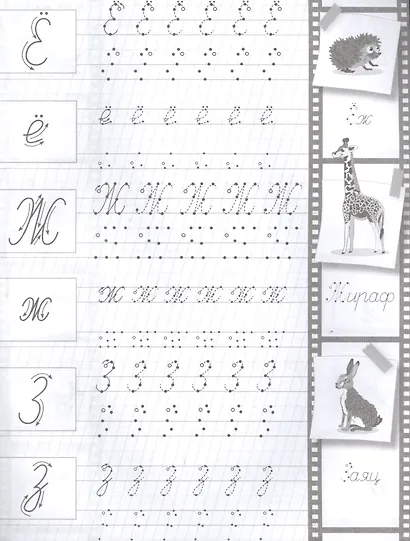 Ё
Ё Ё Ё Ё Ё Ё
Ёж
ё
ё ё ё ё ё ё
Ж
Ж Ж Ж Ж Ж
Жираф
ж
ж ж ж ж ж ж
З
З З З З З З
Заяц
з
з з з з з з